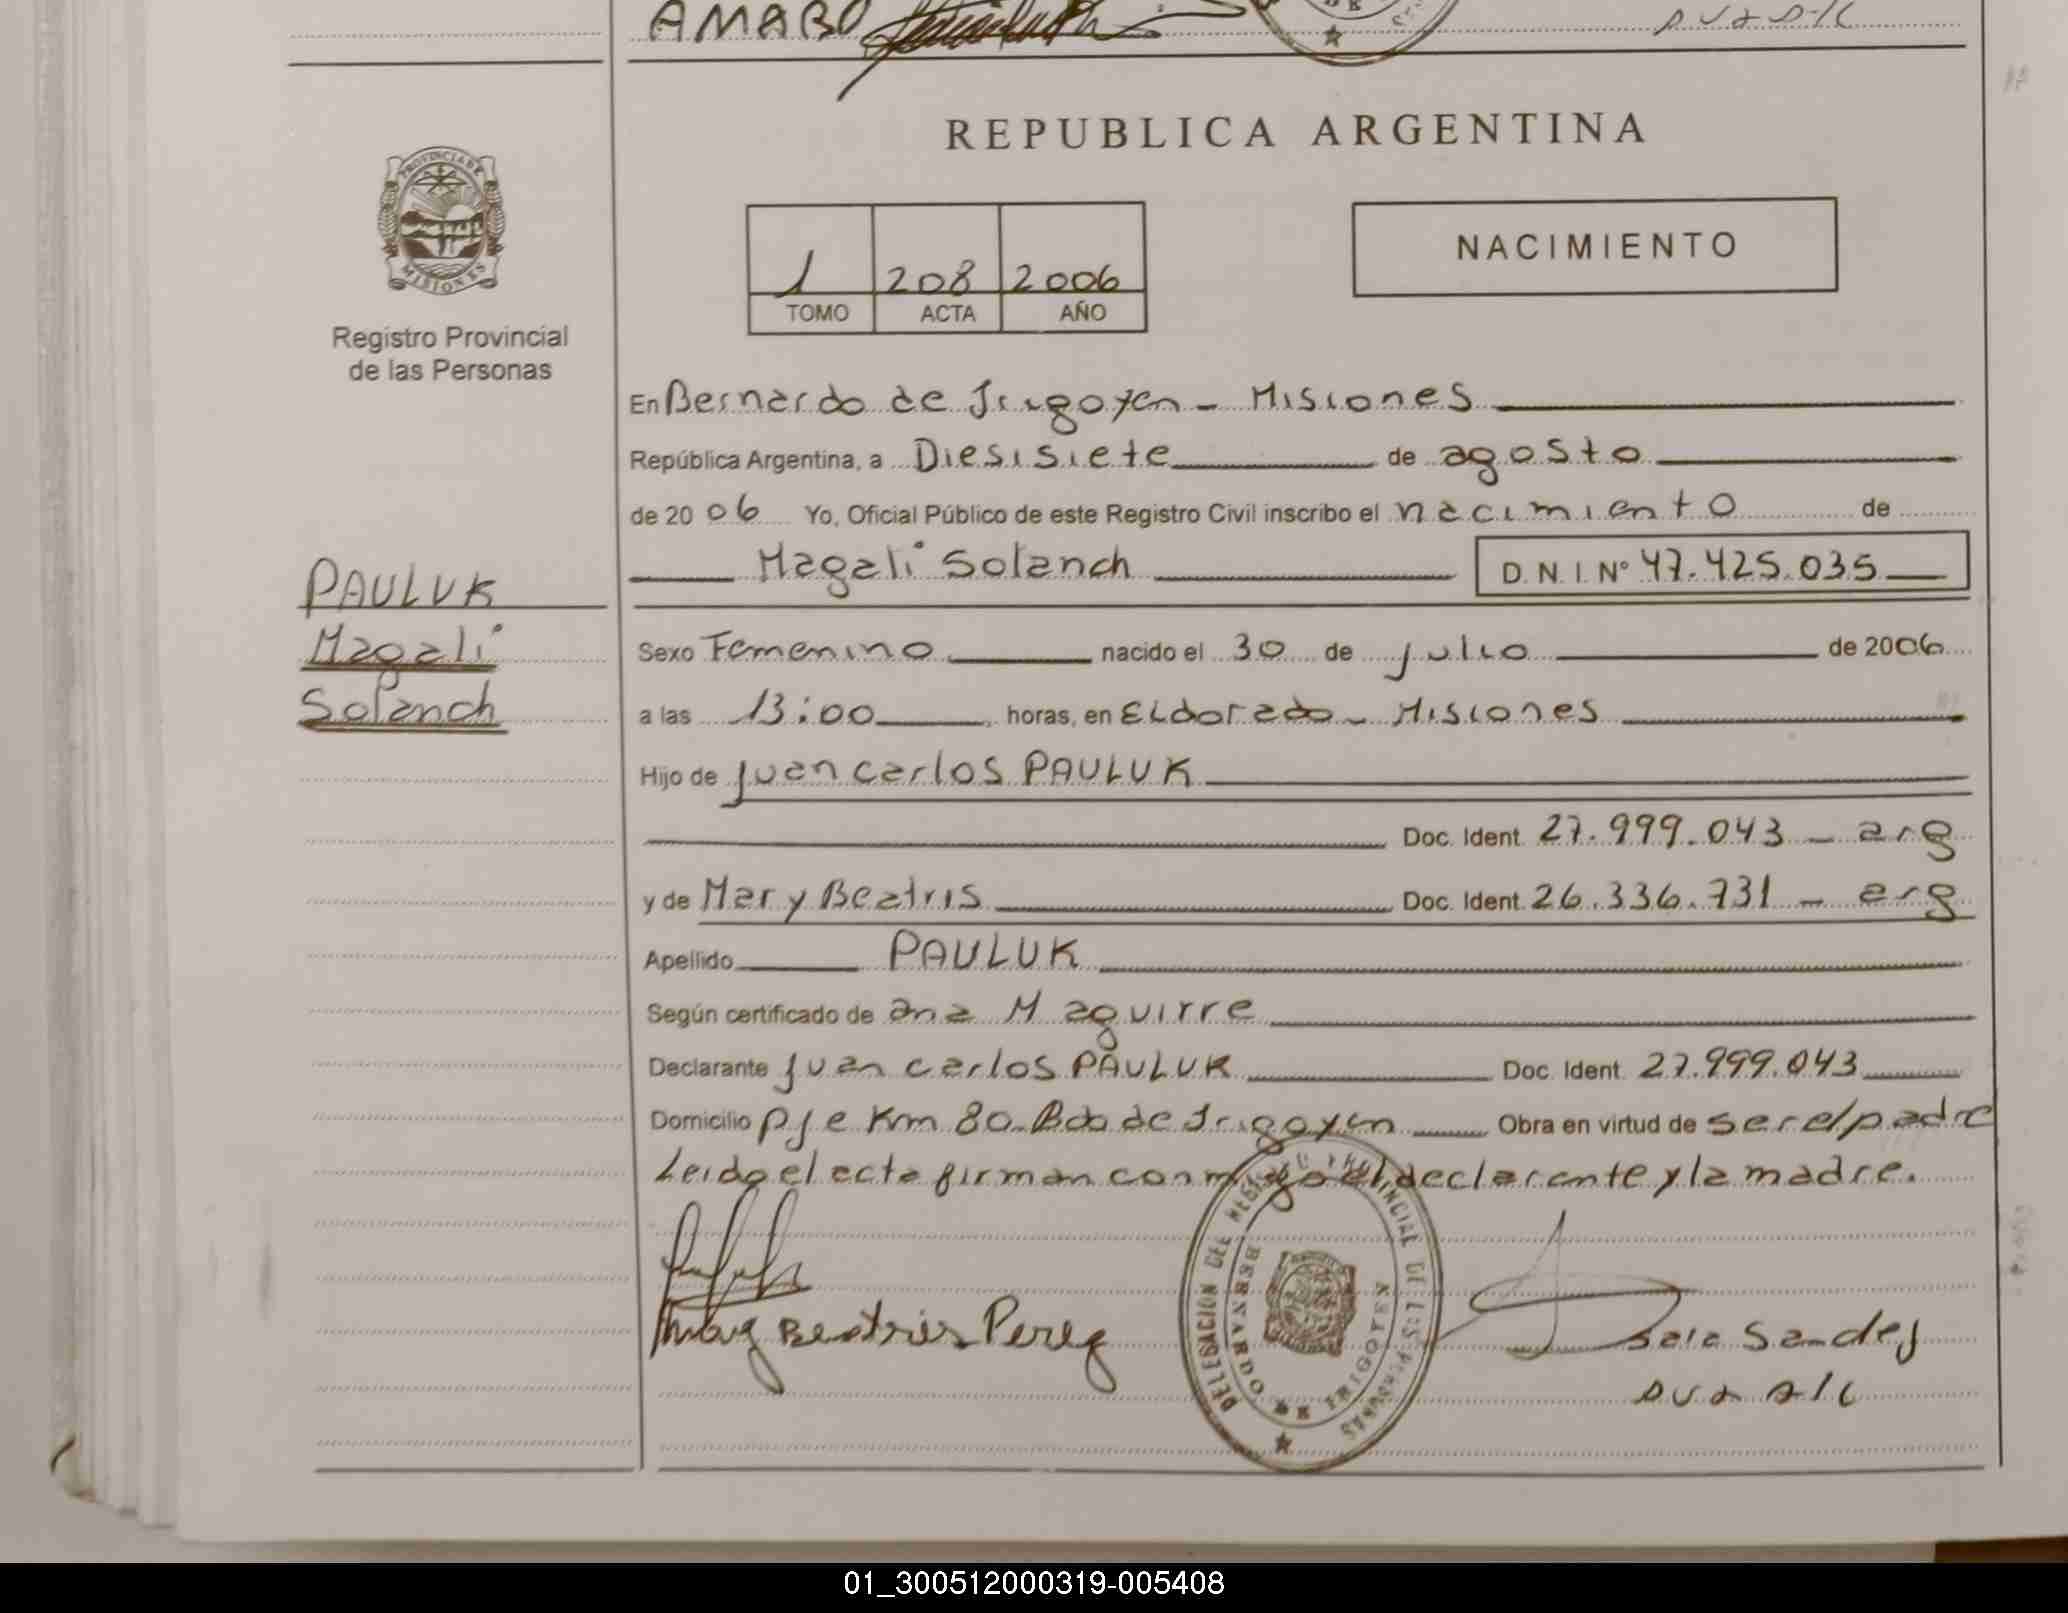 AMARO
REPUBLICA ARGENTINA
PROVINCIA DE
MISIONES
Registro Provincial
de las Personas
1 208 2006
TOMO ACTA AÑO
NACIMIENTO
En Bernardo de Irigoyen - Misiones
República Argentina, a Diesisiete de agosto
de 2006 Yo, Oficial Público de este Registro Civil inscribo el nacimiento de
Magali Solanch D.N.I. Nº 47.425.035
PAULUK
Magali
Solanch
Sexo Femenino nacido el 30 de julio de 2006
a las 13:00 horas, en Eldorado - Misiones
Hijo de Juan Carlos PAULUK
Doc. Ident. 27.999.043 - arg
y de Mary Beatris Doc. Ident. 26.336.731 - arg
Apellido PAULUK
Según certificado de Ana M aguirre
Declarante Juan Carlos PAULUK Doc. Ident. 27.999.043
Domicilio Pje Km 80 Bdo de Irigoyen Obra en virtud de ser el padre
Leido el acta firman conmigo el declarante y la madre.
Mary Beatris Perez
DELEGACION DEL REGISTRO PROVINCIAL DE LAS PERSONAS
BERNARDO DE IRIGOYEN
01_300512000319-005408